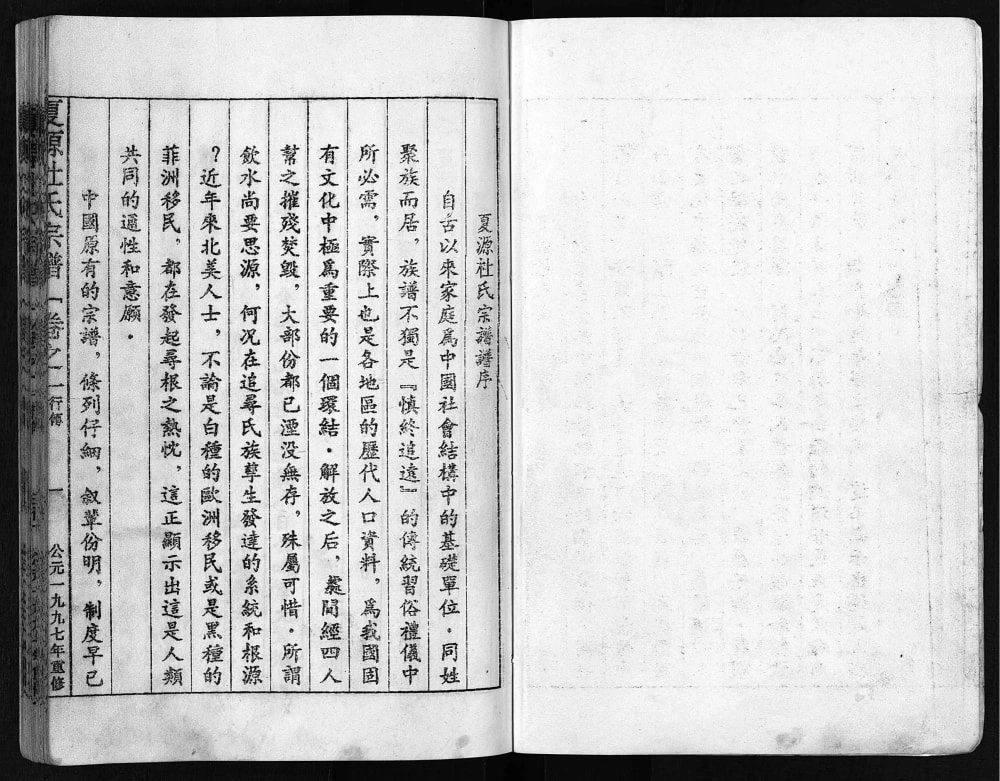 夏源杜氏宗譜譜序
自古以來家庭爲中國社會結構中的基礎單位．同姓
聚族而居，族譜不獨是『慎終追遠』的傳統習俗禮儀中
所必需，實際上也是各地區的歷代人口資料，爲我國固
有文化中極爲重要的一個環結．解放之后，處間經四人
幫之摧殘焚毀，大部份都已湮没無存，殊屬可惜．所謂
飲水尚要思源，何況在追尋氏族孳生發達的系統和根源
？近年來北美人士，不論是白種的歐洲移民或是黑種的
菲洲移民，都在發起尋根之熱忱，這正顯示出這是人類
共同的適性和意願．
中國原有的宗譜，條列仔細，叙輩份明，制度早已
夏源杜氏宗譜「卷之一行傳　一　公元一九九七年重修